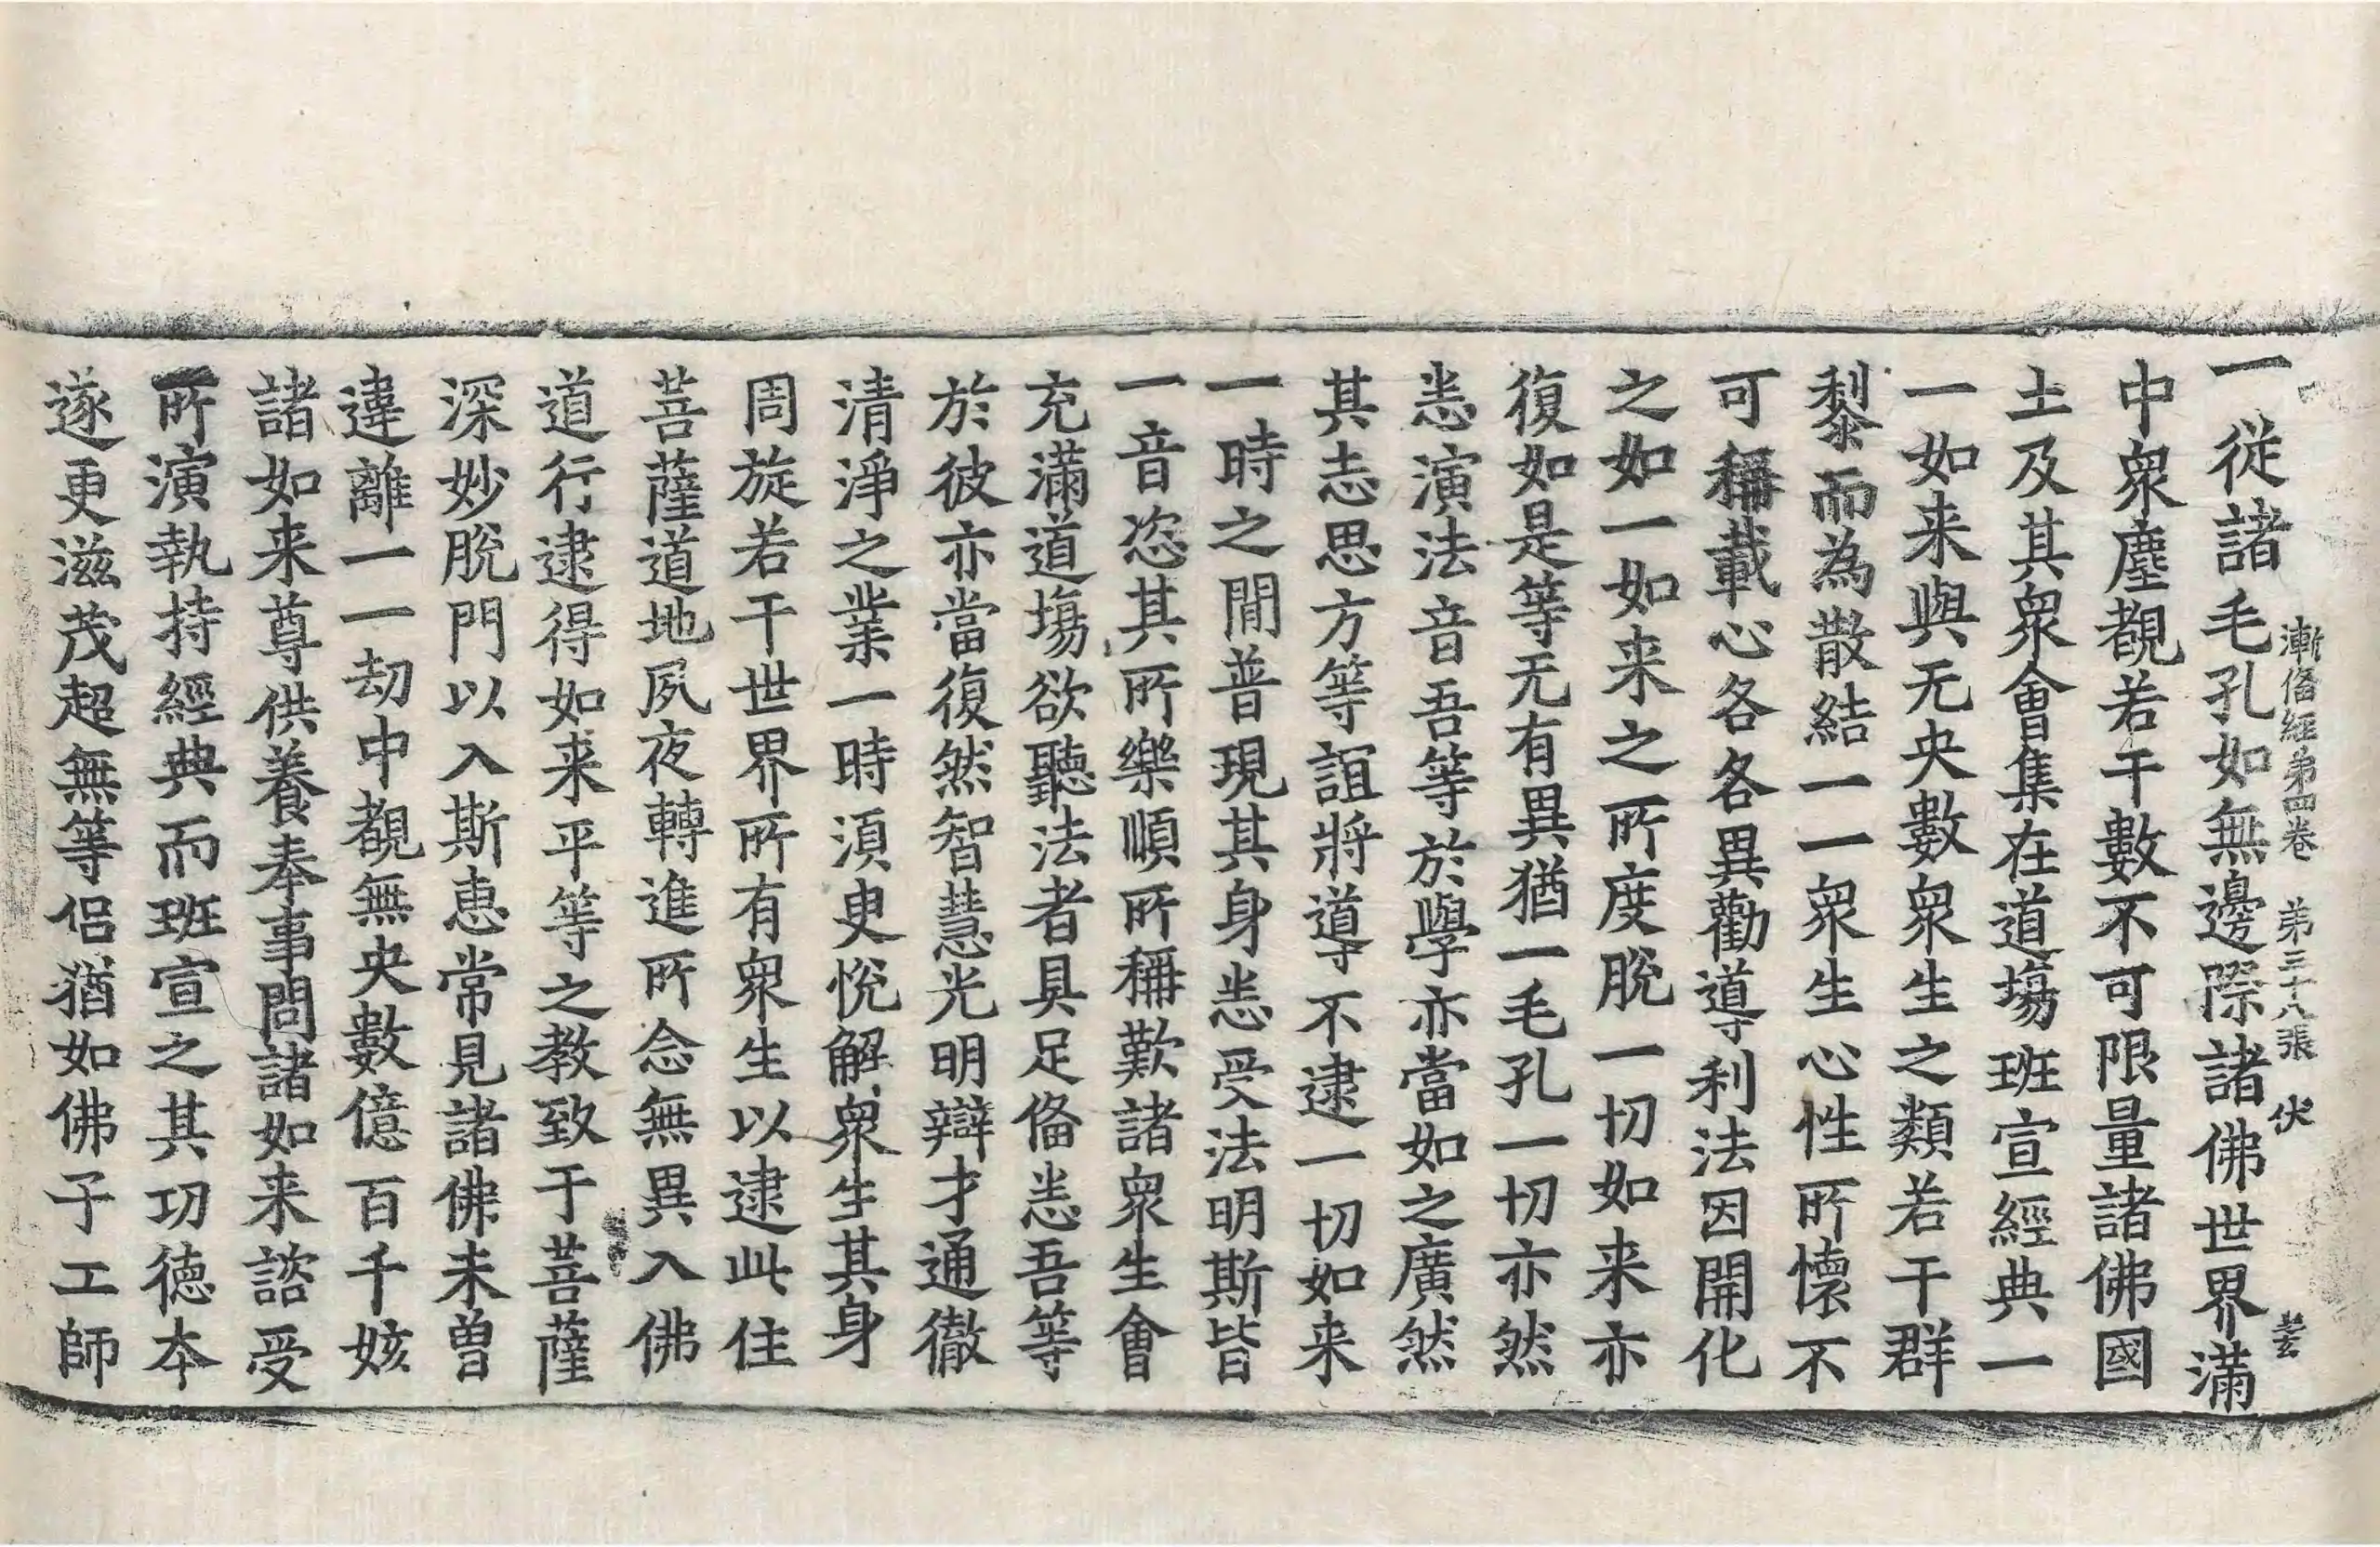 漸俻經第四卷　第三十八張　伏
一從諸毛孔如無邊際諸佛世界滿
中衆塵覩若干數不可限量諸佛國
土及其衆會集在道場班宣經典一
一如来與无央數衆生之類若干群
黎而為散結一一衆生心性所懷不
可稱載心各各異勸導利法因開化
之如一如来之所度脫一切如来亦
復如是等无有異猶一毛孔一切亦然
悉演法音吾等於學亦當如之廣然
其志思方等誼將導不逮一切如来
一時之閒普現其身悉受法明斯皆
一音恣其所樂順所稱歎諸衆生會
充滿道場欲聽法者具足俻悉吾等
於彼亦當復然智慧光明辯才通徹
清淨之業一時須臾悅解衆生其身
周旋若干世界所有衆生以逮此住
菩薩道地夙夜轉進所念無異入佛
道行逮得如来平等之教致于菩薩
深妙脫門以入斯惠常見諸佛未曽
違離一一劫中覩無央數億百千姟
諸如来尊供養奉事問諸如来諮受
所演執持經典而班宣之其功德本
遂更滋茂超無等侶猶如佛子工師